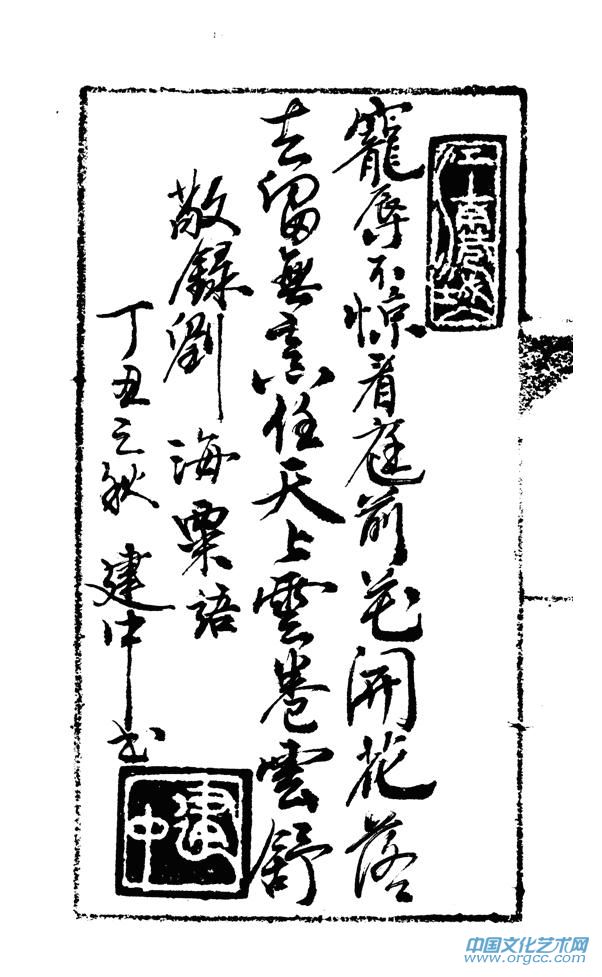 寵辱不惊看庭前花開花落
去留無意任天上雲卷雲舒
敬錄劉海粟語
丁丑之秋 建中书
建中
中国文化艺术网
www.orgcc.com